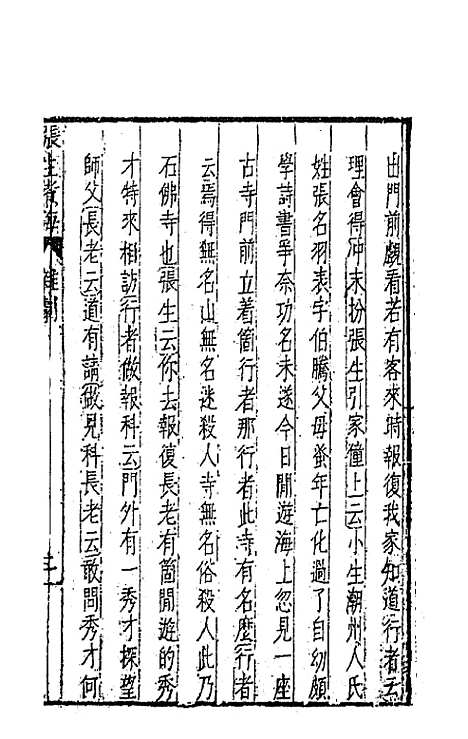 出門前覷看若有客來時報復我家知道行者云
理會得冲末扮張生引家僮上云小生潮州人氏
姓張名羽表字伯騰父母蚤年亡化過了自幼頗
學詩書爭奈功名未遂今日閒遊海上忽見一座
古寺門前立着箇行者那行者此寺有名麽行者
云焉得無名山無名迷殺人寺無名俗殺人此乃
石佛寺也張生云你去報復長老有箇閒遊的秀
才特來相訪行者做報科云門外有一秀才探望
師父長老云道有請做見科長老云敢問秀才何
張生煑海 雜劇
二